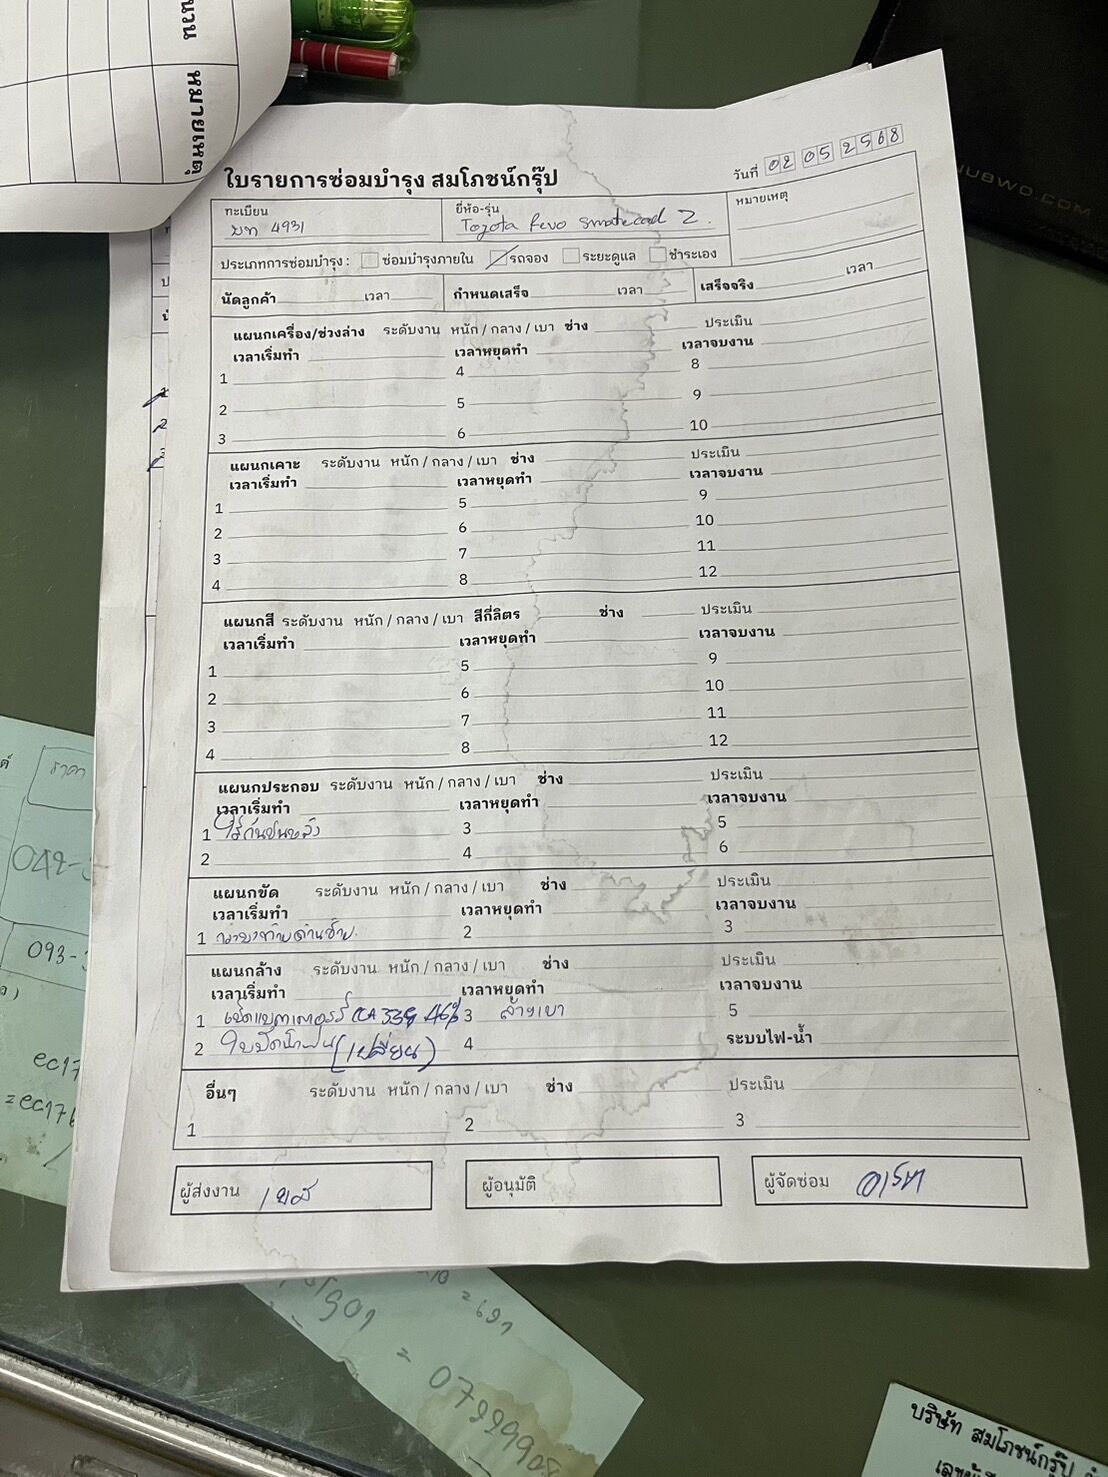 หมายเหตุ
ใบรายการซ่อมบำรุง สมโภชน์กรุ๊ป
วันที่ 02 05 2568
ทะเบียน ยี่ห้อ-รุ่น หมายเหตุ
บท 4931 Toyota Revo Z
ประเภทการซ่อมบำรุง : ซ่อมบำรุงภายใน รถจอง ระยะดูแล ชำระเอง
นัดลูกค้า เวลา กำหนดเสร็จ เวลา เสร็จจริง เวลา
แผนกเครื่อง/ช่วงล่าง ระดับงาน หนัก / กลาง / เบา ช่าง ประเมิน
เวลาเริ่มทำ เวลาหยุดทำ เวลาจบงาน
1 4 8
2 5 9
3 6 10
แผนกเคาะ ระดับงาน หนัก / กลาง / เบา ช่าง ประเมิน
เวลาเริ่มทำ เวลาหยุดทำ เวลาจบงาน
1 5 9
2 6 10
3 7 11
4 8 12
แผนกสี ระดับงาน หนัก / กลาง / เบา สีกี่ลิตร ช่าง ประเมิน
เวลาเริ่มทำ เวลาหยุดทำ เวลาจบงาน
1 5 9
2 6 10
3 7 11
4 8 12
แผนกประกอบ ระดับงาน หนัก / กลาง / เบา ช่าง ประเมิน
เวลาเริ่มทำ เวลาหยุดทำ เวลาจบงาน
1 ใส่กันชนหลัง 3 5
2 4 6
แผนกขัด ระดับงาน หนัก / กลาง / เบา ช่าง ประเมิน
เวลาเริ่มทำ เวลาหยุดทำ เวลาจบงาน
1 2 3
แผนกล้าง ระดับงาน หนัก / กลาง / เบา ช่าง ประเมิน
เวลาเริ่มทำ เวลาหยุดทำ เวลาจบงาน
1 เช็คแบตเตอรี่ CCA 46% 3 ล้างเบา 5
2 ใบปัดน้ำฝน (เปลี่ยน) 4 ระบบไฟ-น้ำ
อื่นๆ ระดับงาน หนัก / กลาง / เบา ช่าง ประเมิน
1 2 3
ผู้ส่งงาน ผู้อนุมัติ ผู้จัดซ่อม
ราคา
093-
บริษัท สมโภชน์กรุ๊ป